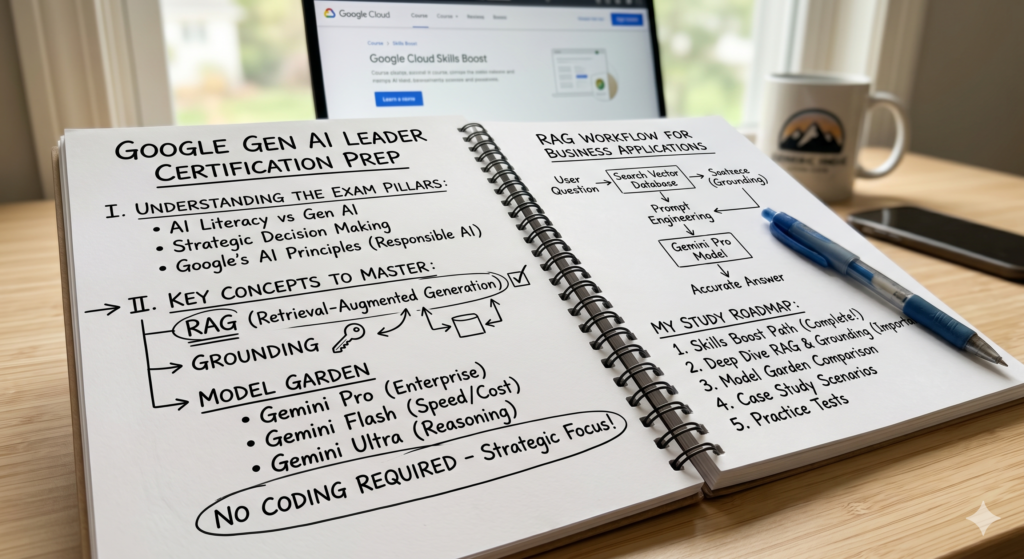 Google Cloud
Course
Course
Google Cloud Skills Boost
GOOGLE GEN AI LEADER
CERTIFICATION PREP
I. UNDERSTANDING THE EXAM PILLARS:
• AI Literacy vs Gen AI
• Strategic Decision Making
• Google's AI Principles (Responsible AI)
II. KEY CONCEPTS TO MASTER:
RAG (Retrieval-Augmented Generation)
GROUNDING
MODEL GARDEN
• Gemini Pro (Enterprise)
• Gemini Flash (Speed/Cost)
• Gemini Ultra (Reasoning)
NO CODING REQUIRED - Strategic Focus!
RAG WORKFLOW FOR
BUSINESS APPLICATIONS
User
Question
Search Vector
Database
Soatrece
(Grounding)
Prompt
Engineering
Gemini Pro
Model
Accurate Answer
MY STUDY ROADMAP:
1. Skills Boost Path (Complete!)
2. Deep Dive RAG & Grounding (Importa
3. Model Garden Comparison
4. Case Study Scenarios
5. Practice Tests